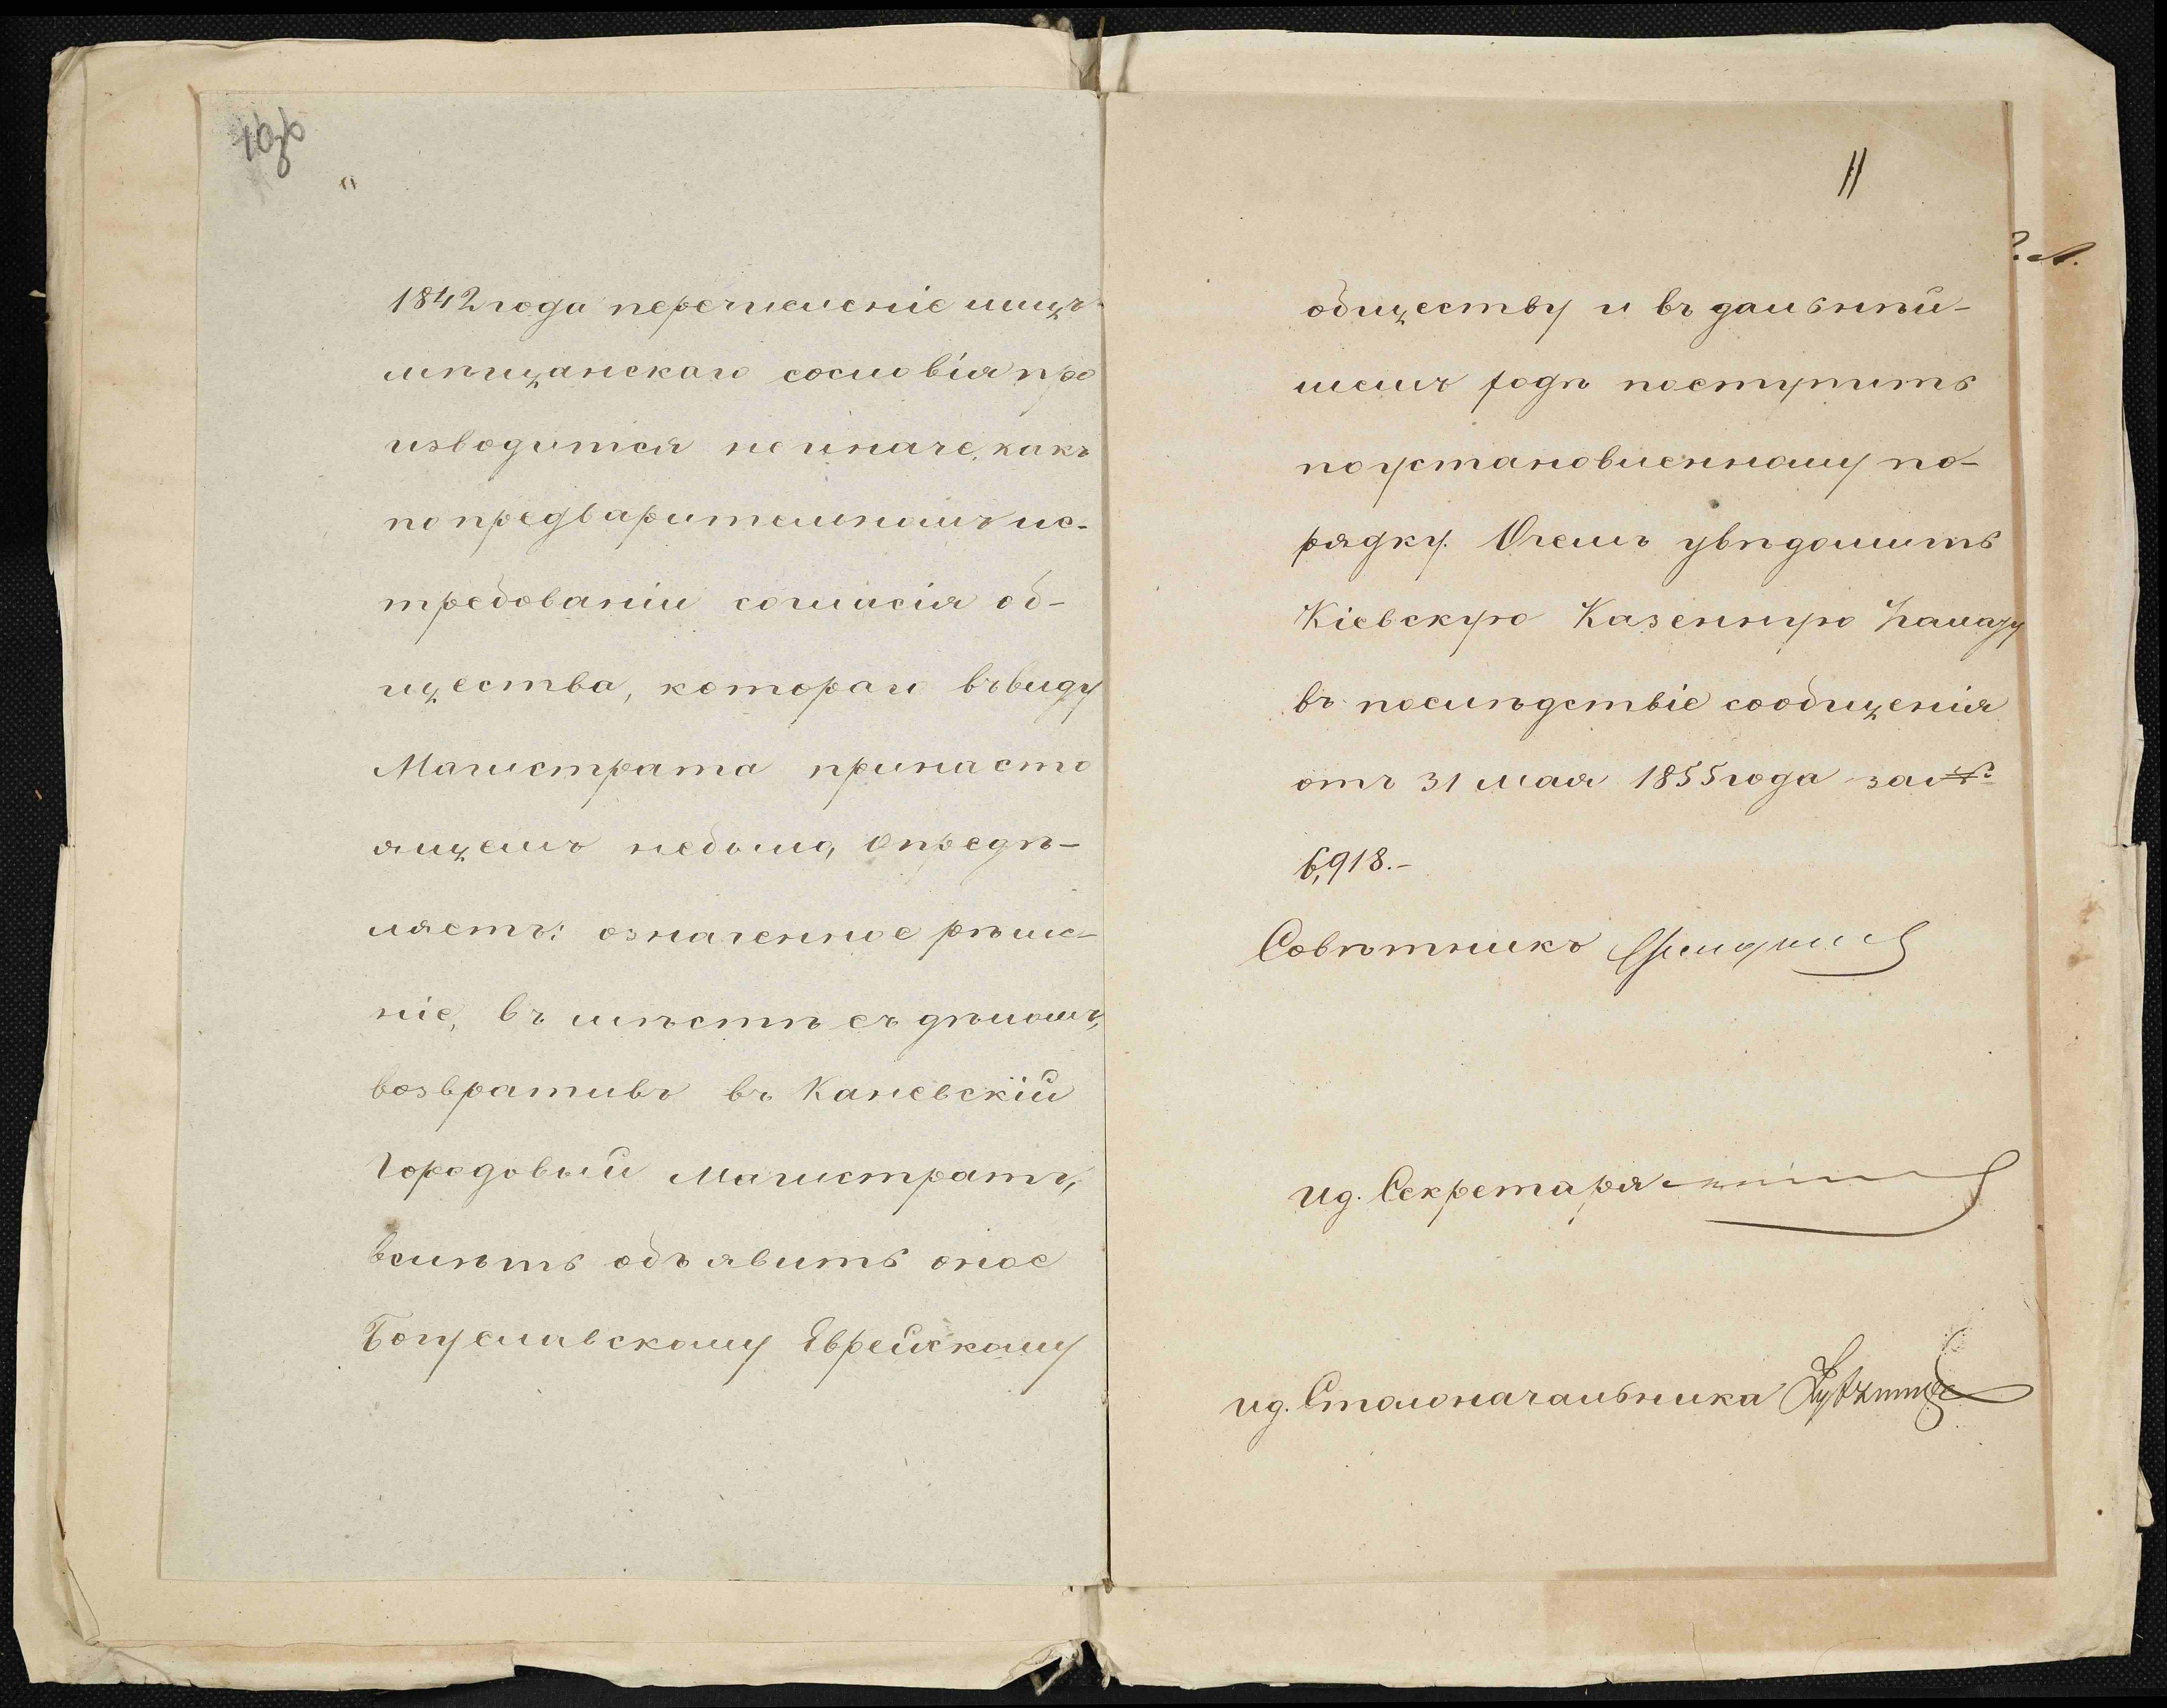 10зв
1842 года перечисленіе лицъ
мѣщанскаго сословія про
изводится не иначе, какъ
по предварительномъ ис-
требованіи согласія об-
щества, котораго въ виду
Магистрата при насто
ящемъ небыло, опредѣ-
ляетъ: означенное рѣше-
ніе, въ мѣстѣ съ дѣломъ,
возвративъ въ Каневскій
Городовый Магистратъ,
велѣть объявить оное
Богуславскому Еврейскому
11
обществу и въ дальнѣй-
шемъ ходѣ поступить
по установленному по-
рядку. О чемъ увѣдомить
Кіевскую Казенную Палату
въ послѣдствіе сообщенія
отъ 31 мая 1855 года за №
6,918.-
Совѣтникъ
Ид. Секретаря
Ид. Столоначальника